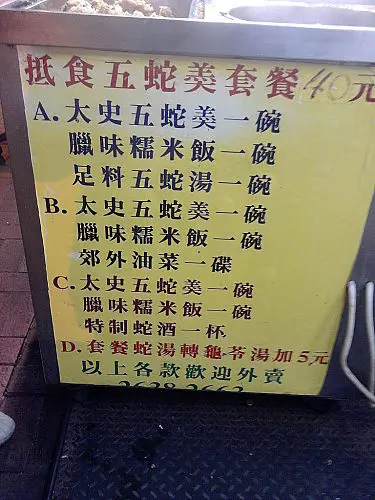 抵食五蛇羮套餐40元
A. 太史五蛇羮一碗
臘味糯米飯一碗
足料五蛇湯一碗
B. 太史五蛇羮一碗
臘味糯米飯一碗
郊外油菜一碟
C. 太史五蛇羮一碗
臘味糯米飯一碗
特制蛇酒一杯
D. 套餐蛇湯轉龜苓湯加5元
以上各款歡迎外賣